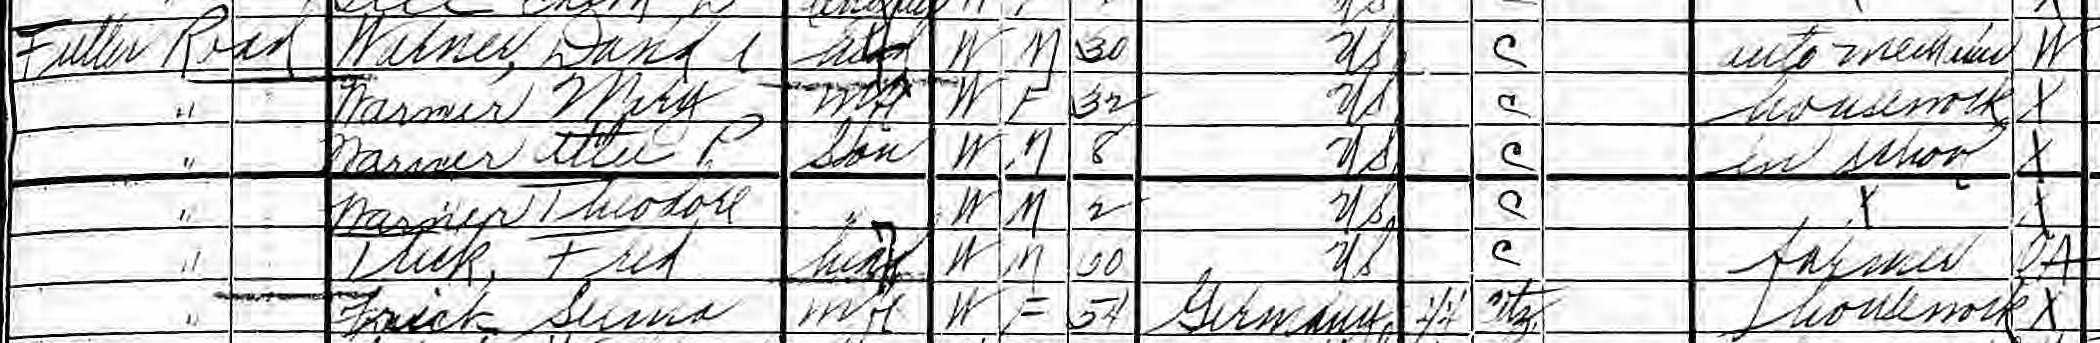 Fuller Road Warner, David head W M 30 US C auto mechanic W
" Warmer Mary wf W F 32 US C housework X
" Warmer P. Son W M 8 US C in school X
" Warner Theodore " W M 2 US C X X
" Fred head W M 60 US C farmer OA
" Frick W F 54 Germany 44 citz. housework X